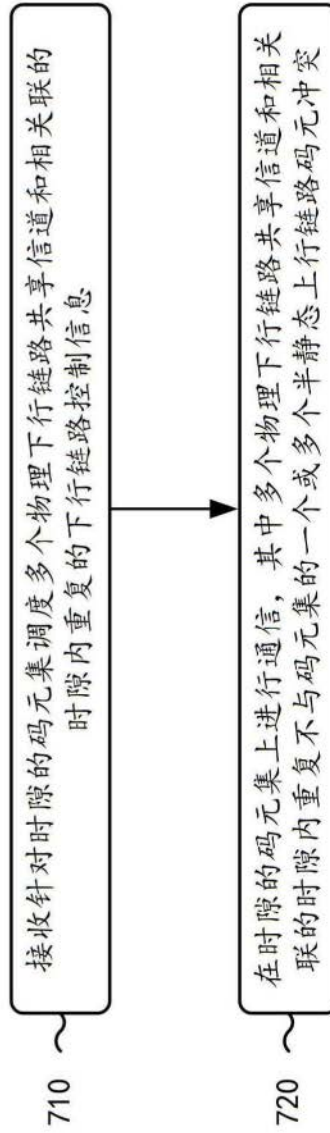 接收针对时隙的码元集调度多个物理下行链路共享信道和相关联的
时隙内重复的下行链路控制信息
710
在时隙的码元集上进行通信，其中多个物理下行链路共享信道和相关
联的时隙内重复不与码元集的一个或多个半静态上行链路码元冲突
720